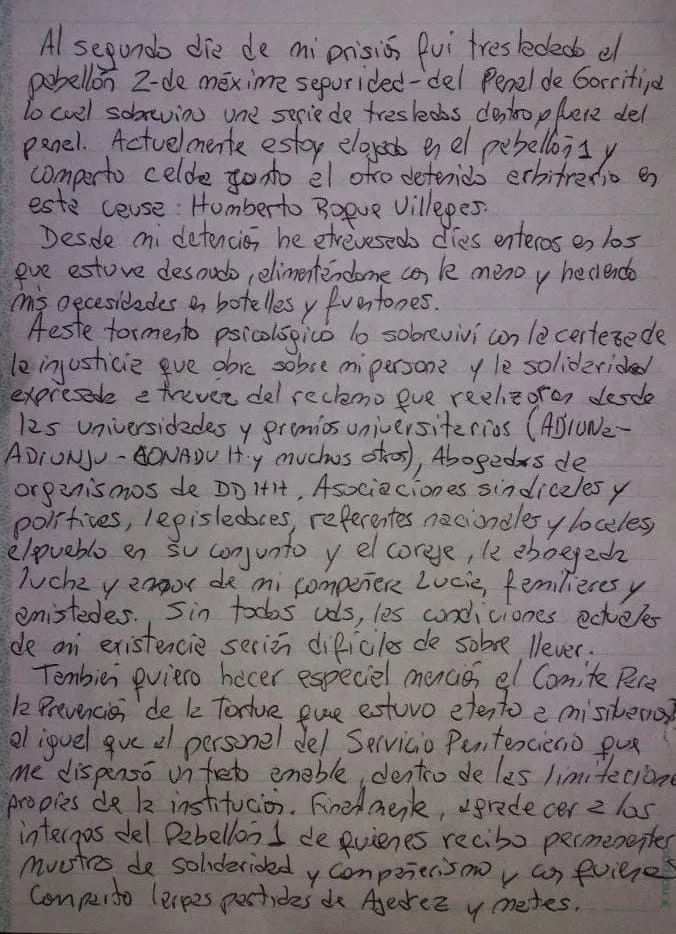 Al segundo día de mi prisión fui trasladado al
pabellón 2-de máxima seguridad-del Penal de Gorriti, a
lo cual sobrevino una serie de traslados dentro y fuera del
penal. Actualmente estoy alojado en el pabellón 1 y
comparto celda junto al otro detenido arbitrario en
esta causa: Humberto Roque Villegas.
Desde mi detención he atravesado días enteros en los
que estuve desnudo, alimentándome con la mano y haciendo
mis necesidades en botellas y fuentones.
A este tormento psicológico lo sobreviví con la certeza de
la injusticia que obra sobre mi persona y la solidaridad
expresada a travez del reclamo que realizaron desde
las universidades y gremios universitarios (ADIUNa-
ADIUNJU - CONADU H. y muchos otros), Abogadxs de
organismos de DDHH, Asociaciones sindicales y
políticas, legisladores, referentes nacionales y locales,
el pueblo en su conjunto y el coraje, la abnegada
lucha y amor de mi compañera Lucía, familiares y
amistades. Sin todos uds, las condiciones actuales
de mi existencia serían difíciles de sobre llevar.
También quiero hacer especial mención al Comité Para
la Prevención de la Tortura que estuvo atento a mi situación
al igual que al personal del Servicio Penitenciario que
me dispensó un trato amable, dentro de las limitacione
propias de la institución. Finalmente, agradecer a los
internos del Pabellón 1 de quienes recibo permanentes
muestras de solidaridad y compañerismo y con quienes
comparto largas partidas de Ajedrez y mates.